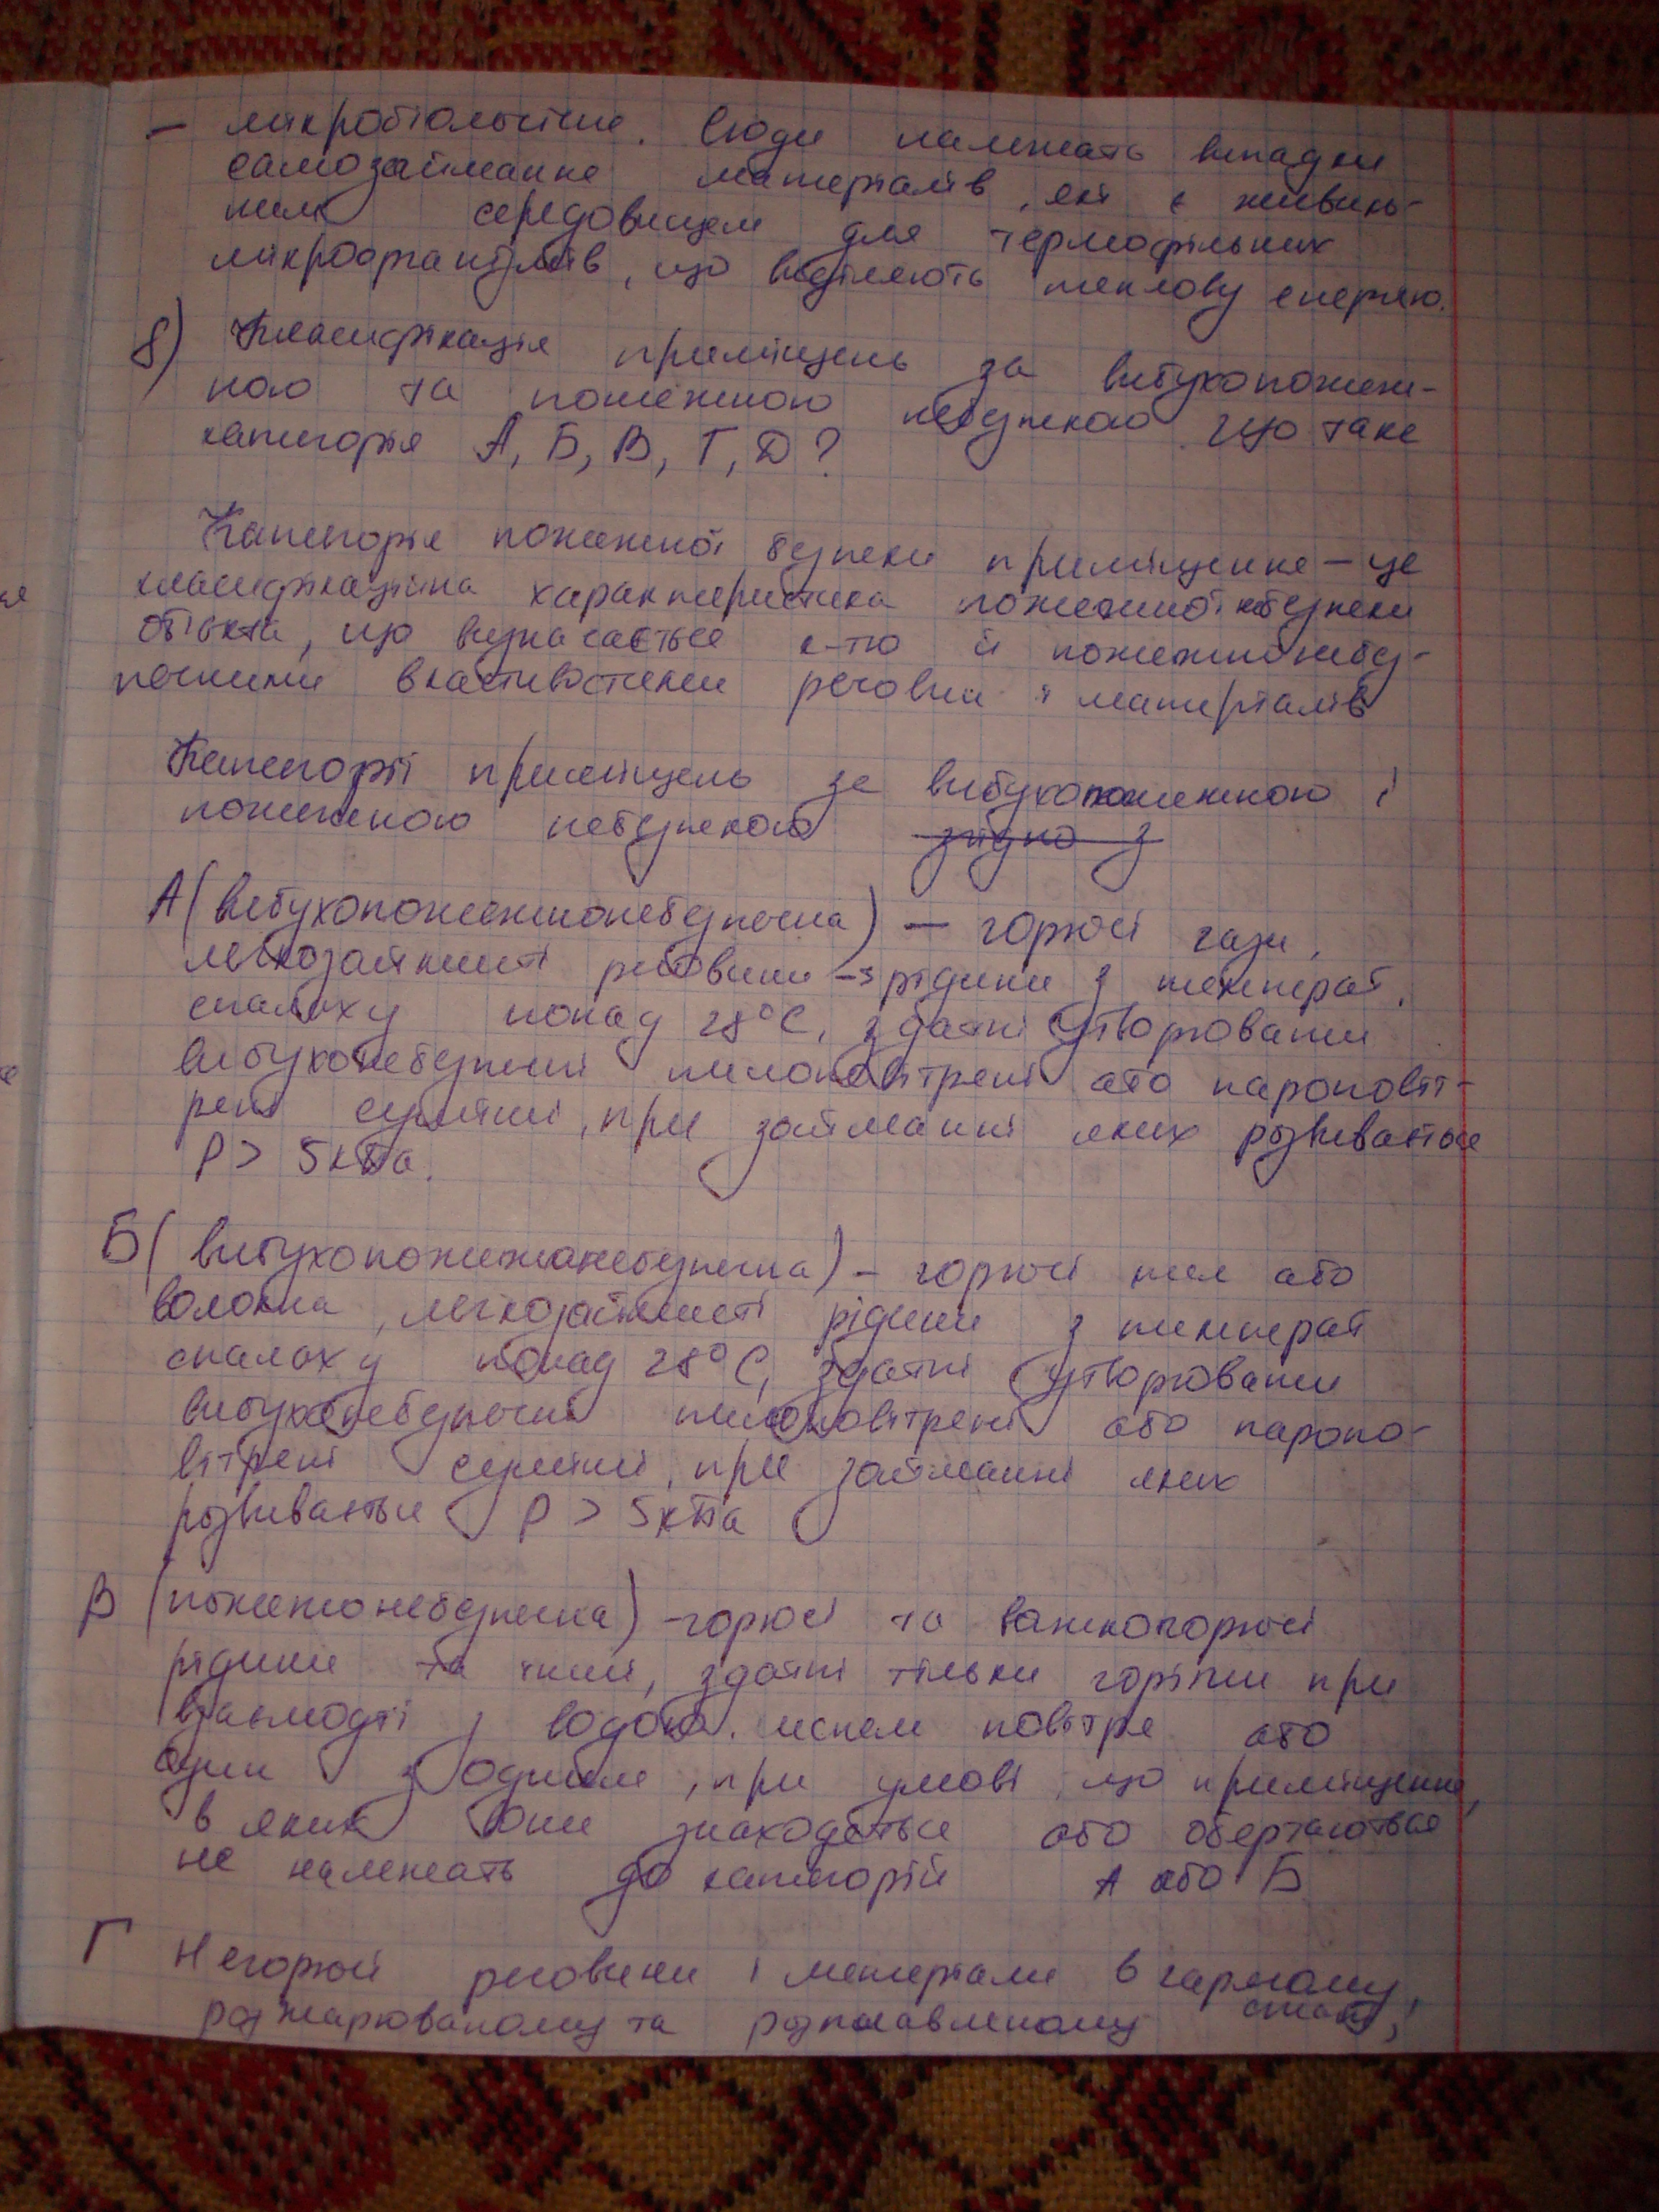 – мікробіологічне. Сюди належать випадки
самозаймання матеріалів, які є живиль-
ним середовищем для термофільних
мікроорганізмів, що виділяють теплову енергію.
8) Класифікація приміщень за вибухопожеж-
ною та пожежною небезпекою. Що таке
категорія А, Б, В, Г, Д?
Категорія пожежної безпеки приміщення – це
класифікаційна характеристика пожежної небезпеки
об'єкта, що визначається к-тю й пожежнонебез-
печними властивостями речовин і матеріалів
Категорії приміщень за вибухопожежною і
пожежною небезпекою згідно з
А (вибухопожежнонебезпечна) – горючі гази,
легкозаймисті речовини → рідини з температ.
спалаху понад 28°С, здатні утворювати
вибухонебезпечні пилоповітряні або пароповіт-
ряні суміші, при займанні яких розвивається
Р > 5кПа.
Б (вибухопожежонебезпечна) – горючі пил або
волокна, легкозаймисті рідини з температ
спалаху понад 28°С, здатні утворювати
вибухонебезпечні пилоповітряні або паропо-
вітряні суміші, при займанні яких
розвивається Р > 5кПа
В (пожежонебезпечна) – горючі та важкогорючі
рідини та інші, здатні тільки горіти при
взаємодії з водою. киснем повітря або
один з одним, при умові, що приміщення,
в яких вони знаходяться або обертаються
не належать до категорій А або Б
Г Негорючі речовини і матеріали в гарячому,
розжарюваному та розплавленому стані,